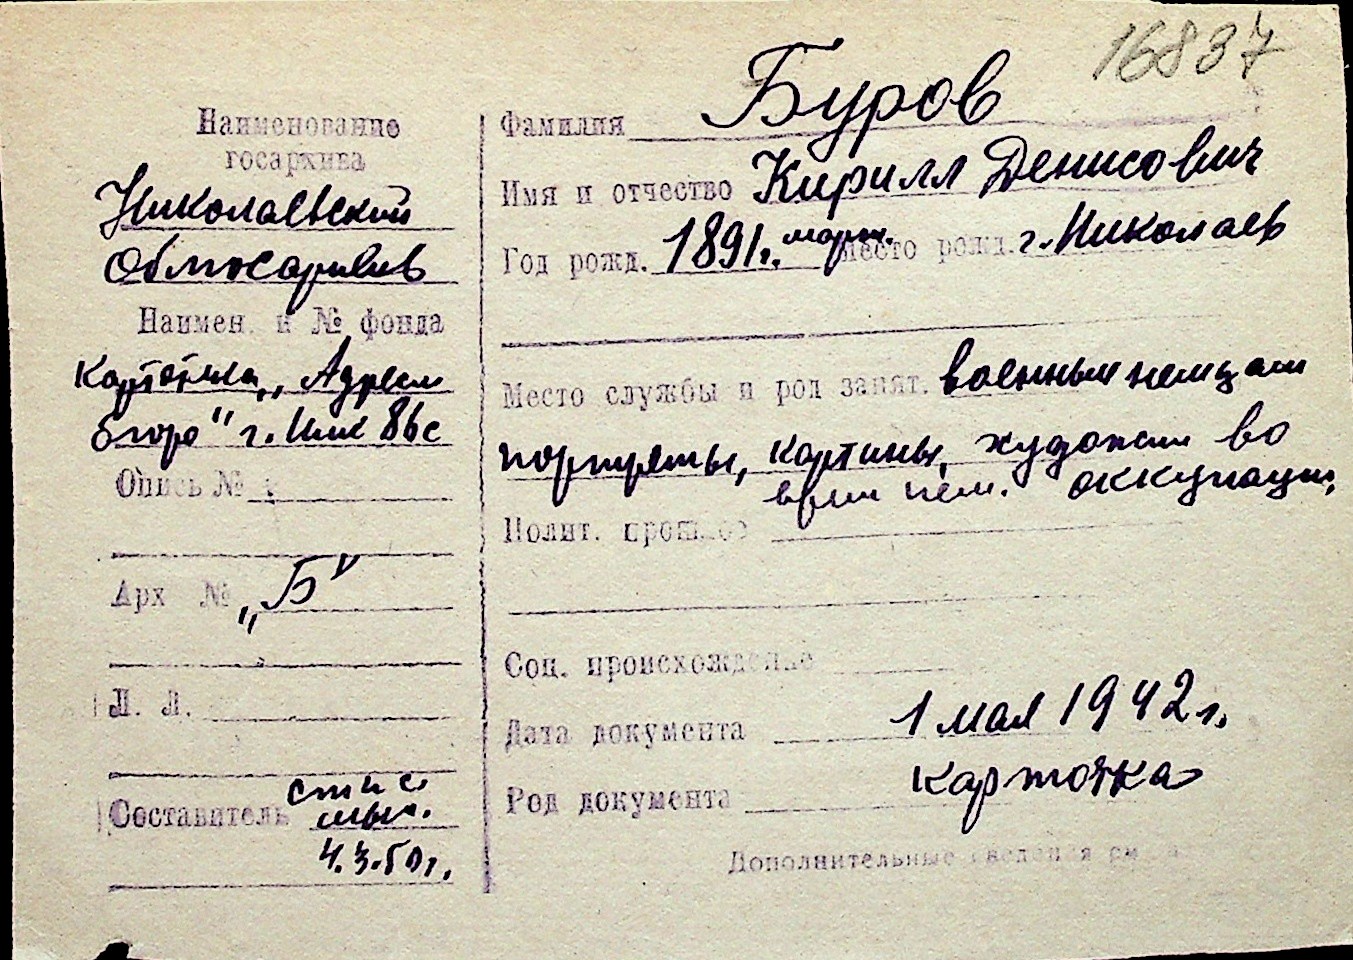 16837
Наименование
госархива
Николаевский
Облгосархив
Наимен. и № фонда
Картотека „Адресн
бюро" г. Ник 86с
Опись №
Арх № „Б"
Л. Л.
Составитель
4.3.50г.
Фамилия Буров
Имя и отчество Кирилл Денисович
Год рожд. 1891г. март. место рожд. г. Николаев
Место службы и род занят. военным немцам
портреты, картины, художник во
время нем. оккупации,
Полит. прошлое
Соц. происхождение
Дата документа 1 мая 1942 г.
Род документа карточка
Дополнительные сведения